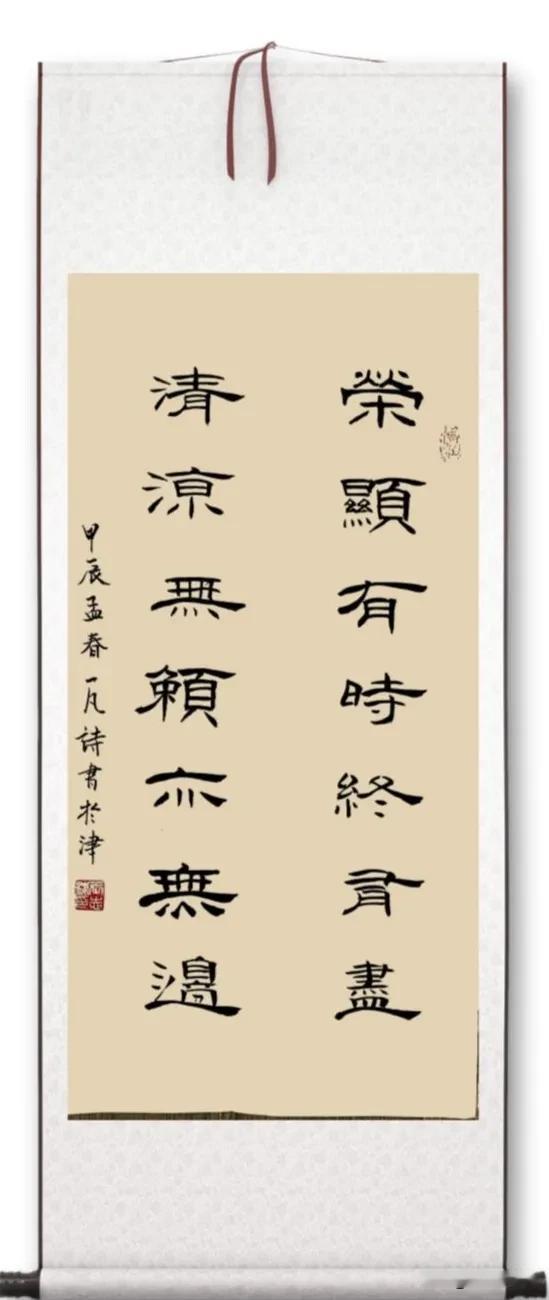 榮顯有時終有盡
清涼無賴亦無邊
甲辰孟春一凡詩書於津